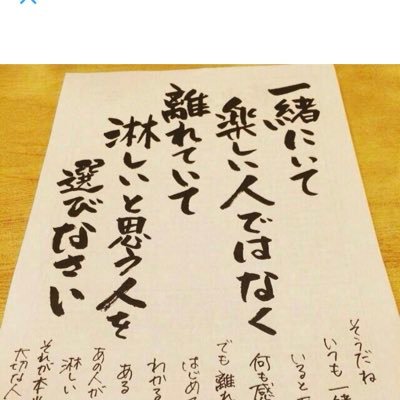 一緒にいて
楽しい人ではなく
離れていて
淋しいと思う人を
選びなさい
そうだね
いつも一緒
いると
何も感
でも離れ
はじめ
わかる
ある
あの人が
淋しい
それが本当
大切な人